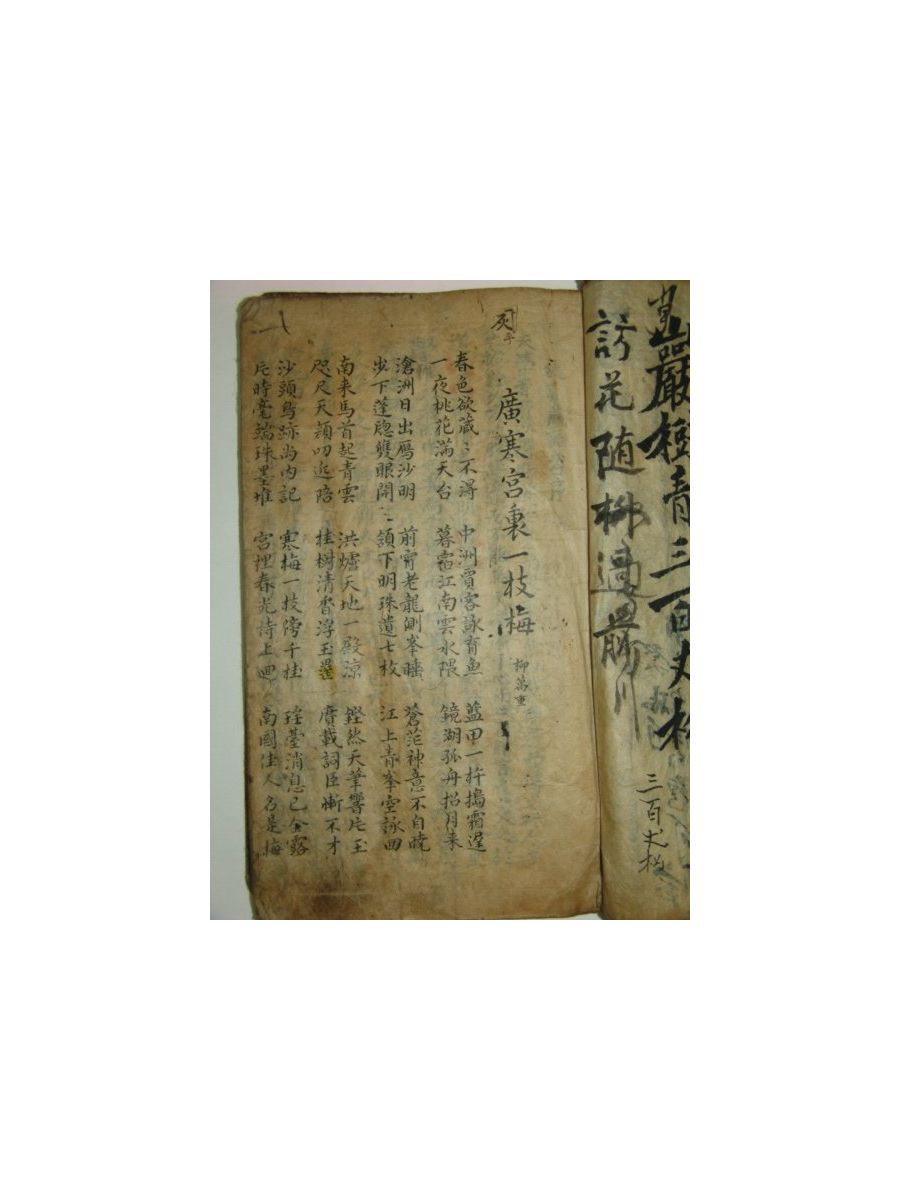 巖樹青三百丈松
訪花随柳過前川
三百丈松
廣寒宮裏一枝梅
柳萬重
春色欲蔵〻不得
一夜桃花滿天台
中洲賈客詠育魚
暮宿江南雲水隈
藍田一杵搗霜遲
鏡湖孤舟招月来
滄洲日出鴈沙明
步下蓬牕雙眼開
前宵老龍側峯睡
頷下明珠遺七枚
蒼茫神意不自曉
江上青峯空詠回
南来馬首起青雲
咫尺天顔叨近陪
洪爐天地一殿凉
桂樹清香浮玉罍
鏗然天筆響片玉
賡載詞臣慚不才
沙頭鳥跡尚內記
片時毫端珠墨堆
寒梅一枝傍千桂
宮裡春光待上回
瑤臺消息已全露
南國佳人名是梅